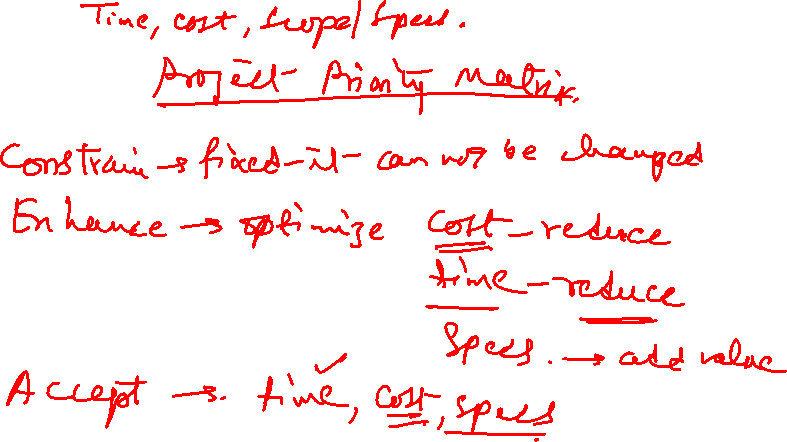 Time, cost, Scope/Specs.
Project Priority Matrix.
Constrain → fixed-it can not be changed
Enhance → optimize cost-reduce
time-reduce
Specs. → add value
Accept → time, cost, specs